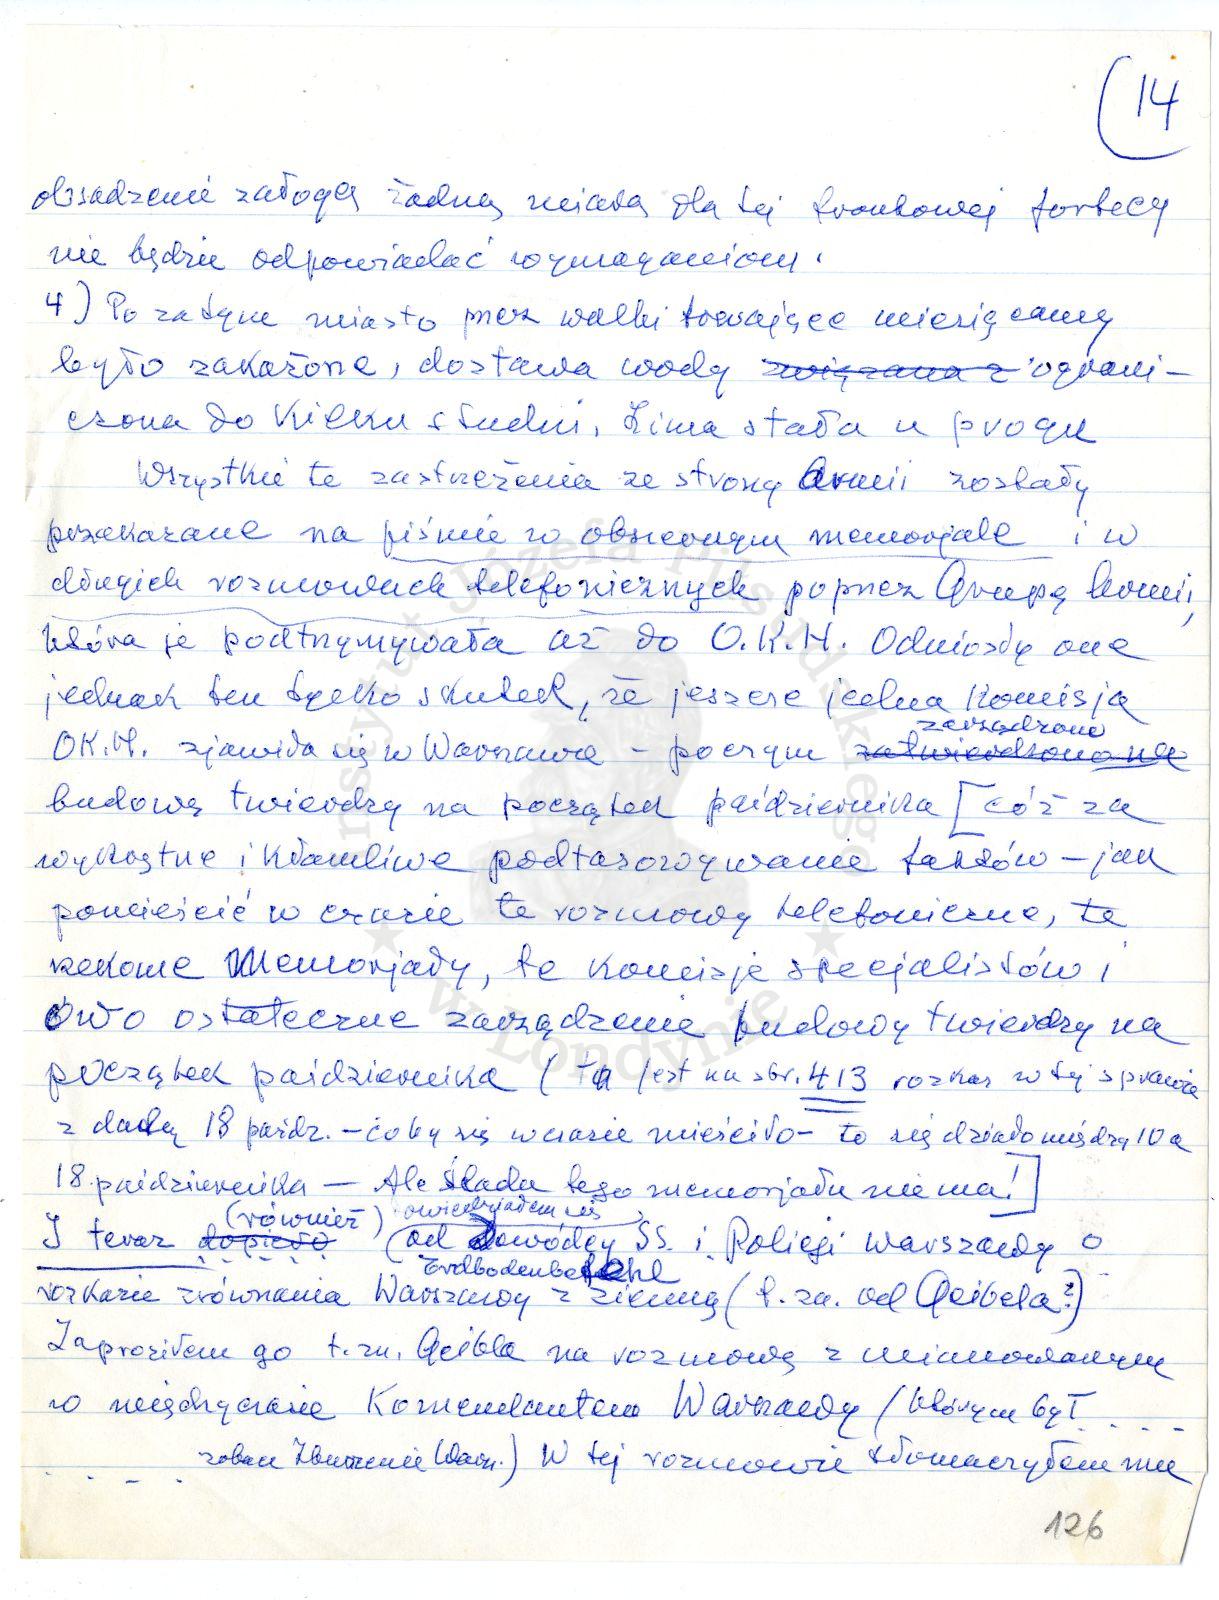 (14
obsadzenie załogą żadną miarą dla tej frontowej fortecy
nie będzie odpowiadać wymaganiom.
4) Poza tym miasto przez walki trwające miesiącami
było zakażone, dostawa wody związana z ograni-
czona do kilku studni, Zima stała u progu
Wszystkie te zastrzeżenia ze strony Armii zostały
przekazane na piśmie w obszernym memorjale i w
długich rozmowach telefonicznych poprzez Grupę Armii,
która je podtrzymywała aż do O.K.H. Odniosły one
jednak ten tylko skutek, że jeszcze jedna Komisja
zarządzono
OK.H. zjawiła się w Warszawie - poczym zatwierdzono na
budowę twierdzy na początek października [cóż za
wykrętne i kłamliwe podtasowywanie faktów - jak
pomieścić w czasie te rozmowy telefoniczne, te
rzekome Memorjały, te komisje specjalistów i
owo ostateczne zarządzenie budowy twierdzy na
początek października (tu jest na str. 413 rozkaz w tej sprawie
z datą 18 paźdz. - coby się w czasie mieściło - to się działo między 10 a
18 października - Ale śladu tego memorjału nie ma!]
(również) owiedziałem się
I teraz dopiero (od Dowódcy SS. i Policji Warszawy o
Erdbodenbefehl
rozkazie zrównania Warszawy z ziemią (t. zn. od Geibela?)
Zaprosiłem go t. zn. Geibla na rozmowę z mianowanym
w międzyczasie Komendantem Warszawy (którym był ....
.... zobacz Zburzenie Warsz.) W tej rozmowie tłomaczyłem mu
126
Instytut Józefa Piłsudskiego
w Londynie